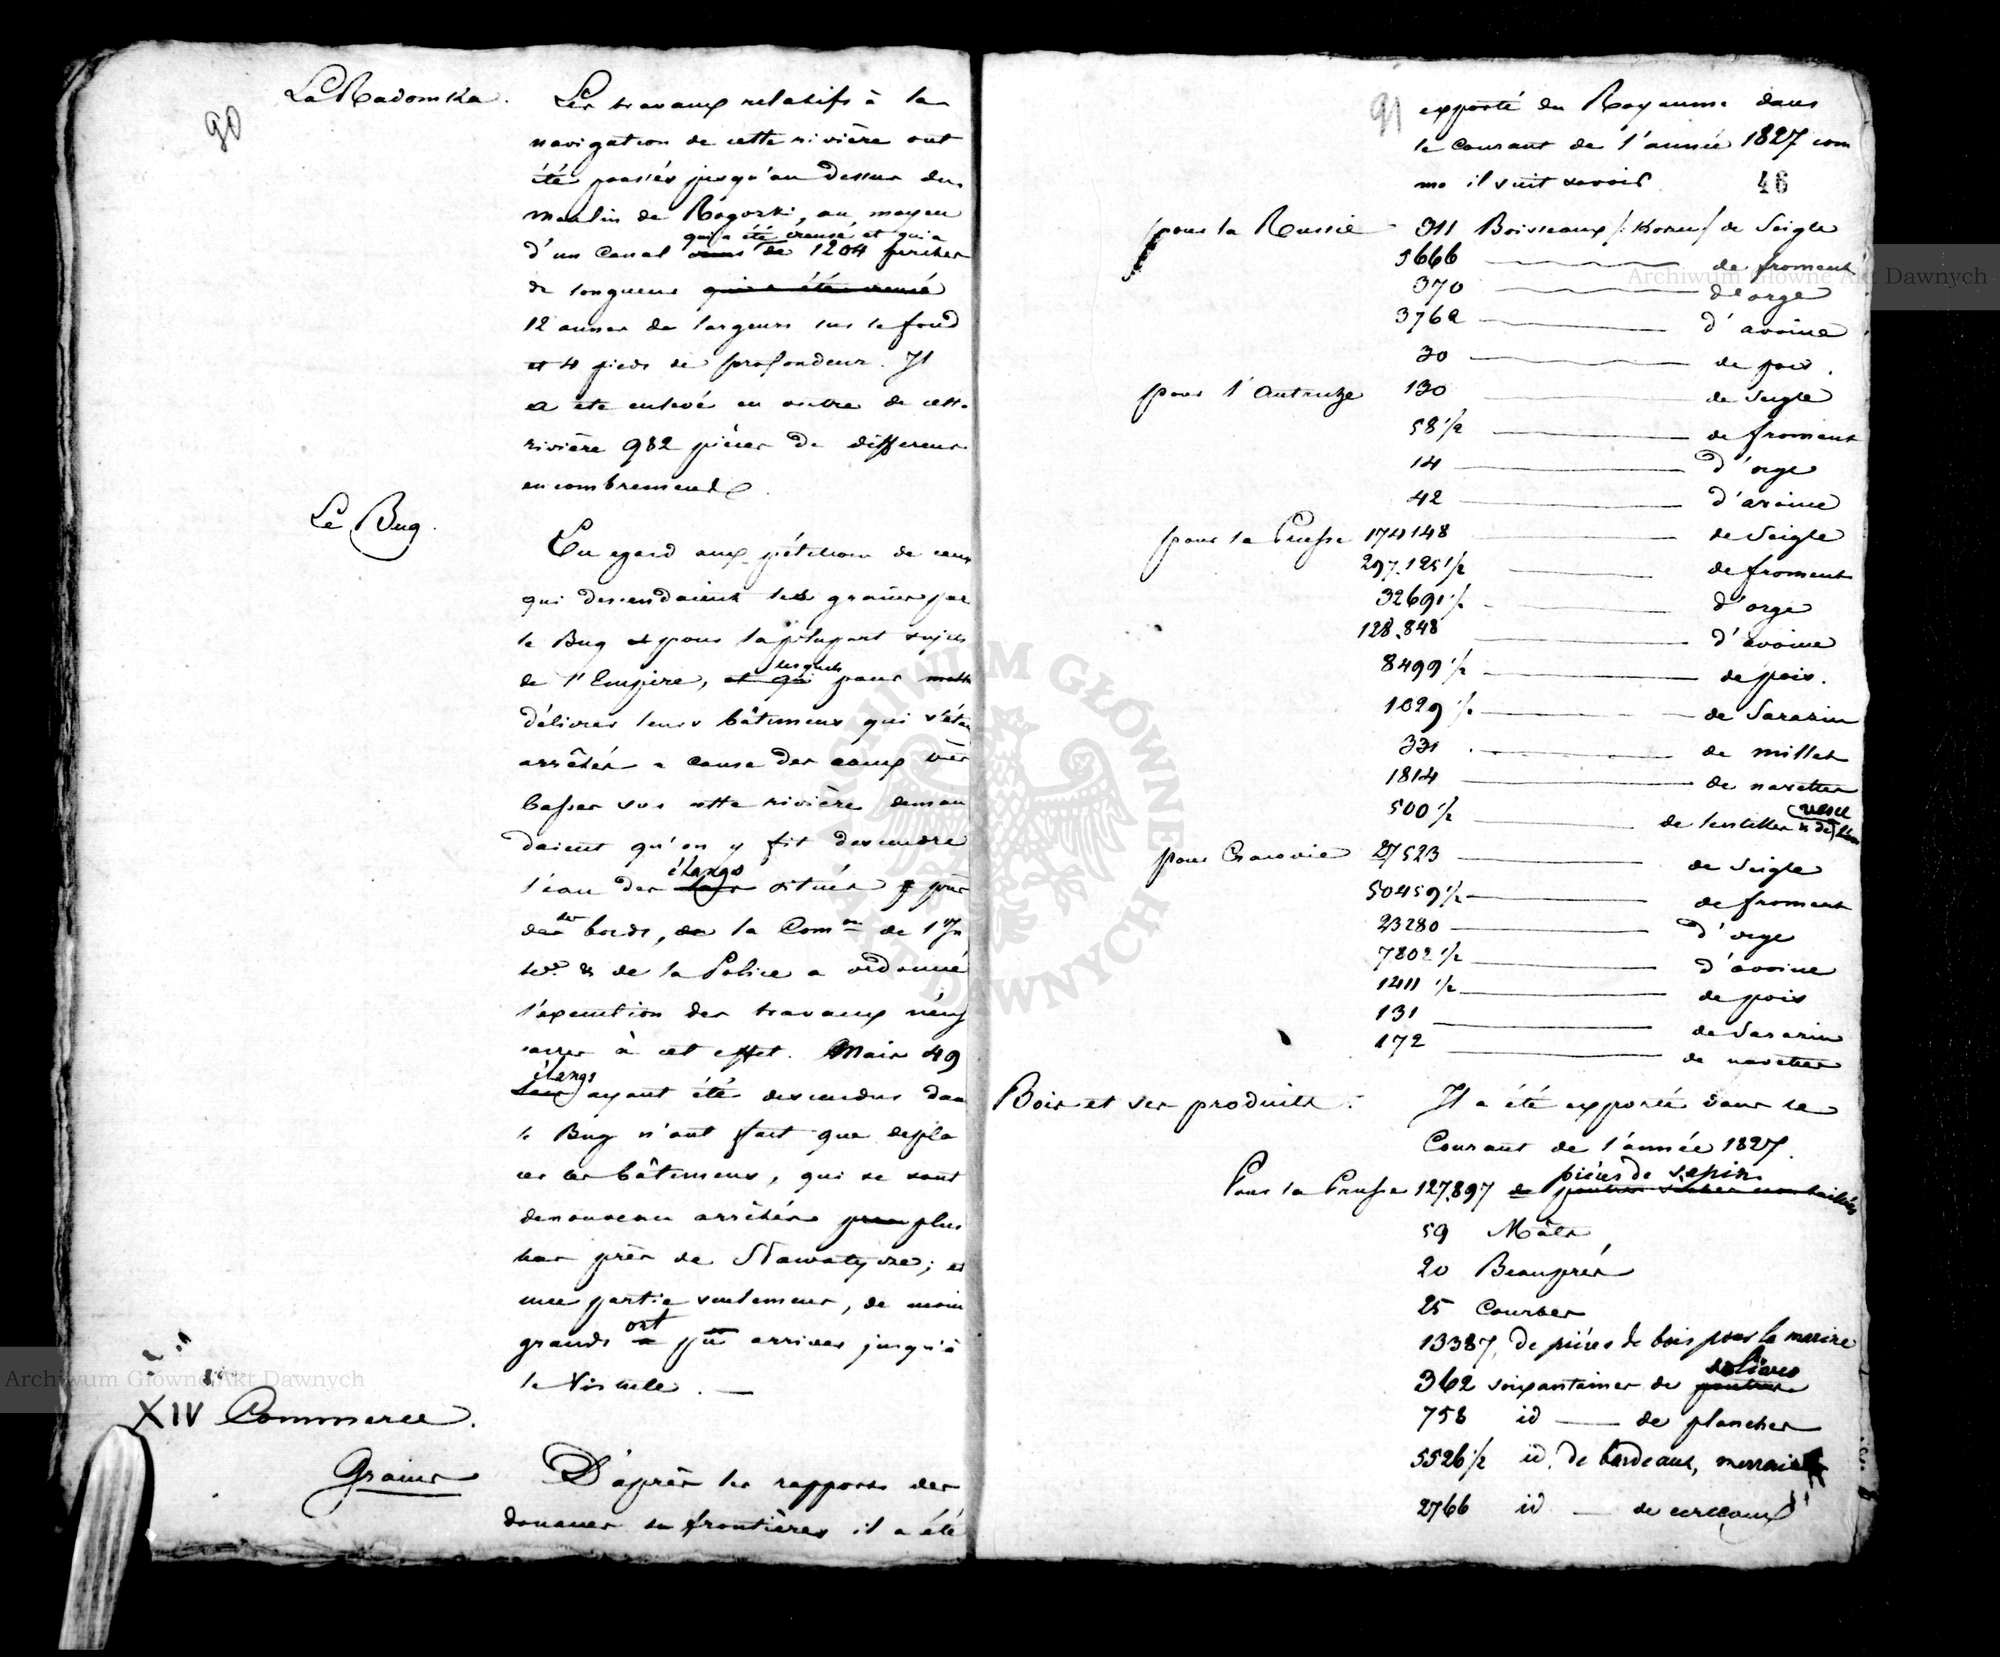 90
La Radomka.
Les travaux relatifs à la
navigation de cette rivière ont
été poussés jusqu'au dessus du
moulin de Rogorki, au moyen
qui a été creusé et qui a
d'un Canal de 1204 perches
de longueur qui a été creusé
12 aunes de largeur sur le fond
et 4 pieds de profondeur. Il
a été enlevé en outre de cette
rivière 982 pièces de différens
encombremens.
Le Bug.
Eu egard aux pétitions de ceux
qui descendaient les grains par
le Bug et pour la plupart sujets
lesquels
de l'Empire, et qui pour mettre
délivrer leurs bâtimens qui s'étai
arrêtés a cause des eaux très
basses sur cette rivière deman
daient qu'on y fit descendre
étangs
l'eau des lacs situés près
ses
des bords, la Comon de l'In
tér. & de la Police a ordonné
l'exécution des travaux néces
saires à cet effet. Mais 49
étangs
lacs ayant été descendus dans
le Bug n'ont fait que depla
cer ces bâtimens, qui se sont
denouveau arrêtés plus
bas près de Sławatycze; et
une partie seulement, de moin
ont
grands a pu arriver jusqu'à
la Vistule. —
XIV Commerce.
Grains
D'après les rapports des
douanes de frontières il a été
91
exporté du Royaume dans
le courant de l'année 1827 com
me il suit savoir.
46
pour la Russie 311 Boisseaux /: Korzec/ de Seigle
5666 — de froment
370 — d'orge
3762 — d'avoine
30 — de pois.
pour l'Autriche 130 — de Seigle
58 1/2 — de froment
14 — d'orge
42 — d'avoine
pour la Prusse 174148 — de Seigle
297.125 1/2 — de froment
32691 1/2 — d'orge
128.848 — d'avoine
8499 1/2 — de pois.
1029 1/2 — de Sarazin
331 — de millet
1814 — de navettes
500 1/2 — de lentilles
pour Cracovie 27523 — de Seigle
50459 1/2 — de froment
23280 — d'orge
7802 1/2 — d'avoine
1411 1/2 — de pois
131 — de Sarazin
172 — de navettes
Bois et ses produits.
Il a été exporté dans le
Courant de l'année 1827.
pièces de sapin
Pour la Prusse 127,897 de poutres
59 Mâts
20 Beauprés
25 Courbes
13387, de pièces de bois pour la marine
solives
362 soixantaines de poutres
758 id — de planches
5526 1/2 id. de bardeaux, merrains
2766 id — de cerceaux
Archiwum Główne Akt Dawnych
Archiwum Główne Akt Dawnych
ARCHIWUM GŁÓWNE AKT DAWNYCH